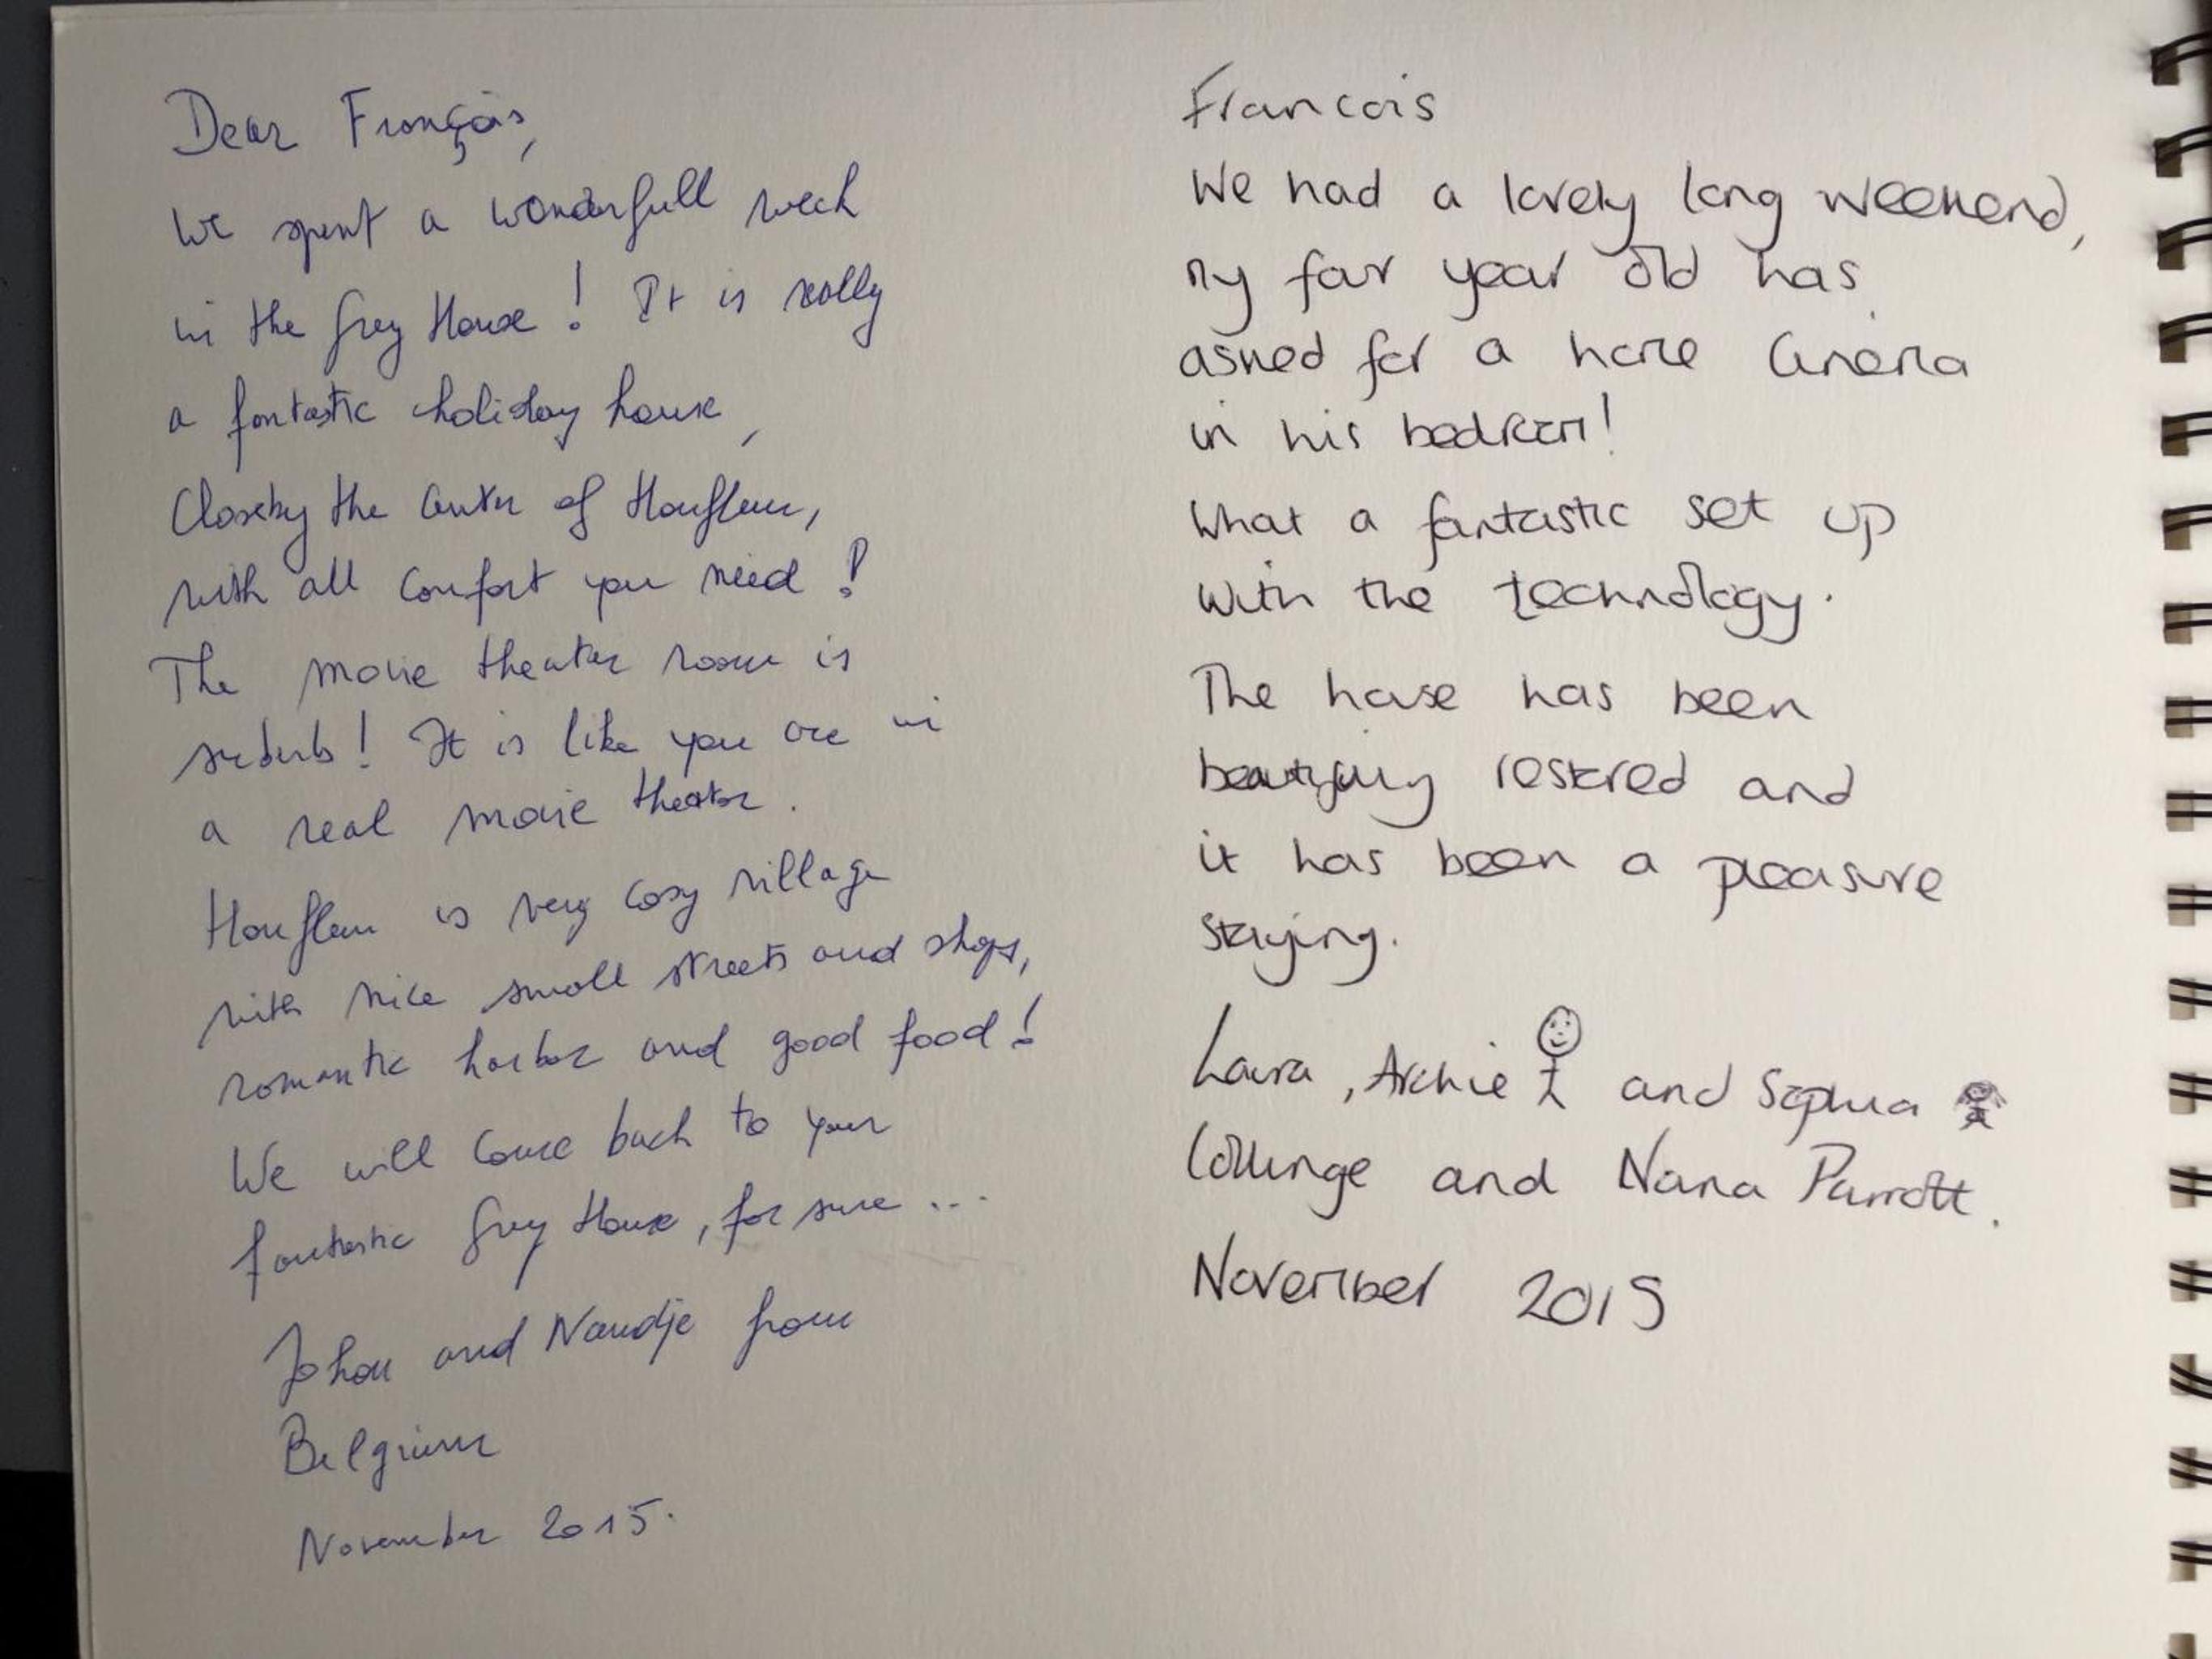 Dear François,
We spent a wonderfull week
in the Grey House! It is really
a fantastic holiday house,
Closeby the center of Honfleur,
with all confort you need!
The movie theater room is
suburb! It is like you are in
a real movie theater.
Honfleur is very cosy village
with nice small streets and shops,
romantic harbor and good food!
We will come back to your
fantastic Grey House, for sure ...
Johan and Naudje from
Belgium
November 2015.
Francois
We had a lovely long weekend,
my four year old has
asked for a home cinema
in his bedroom!
What a fantastic set up
with the technology.
The house has been
beautifully restored and
it has been a pleasure
staying.
Laura, Archie and Sophia
Collinge and Nana Parrott.
November 2015